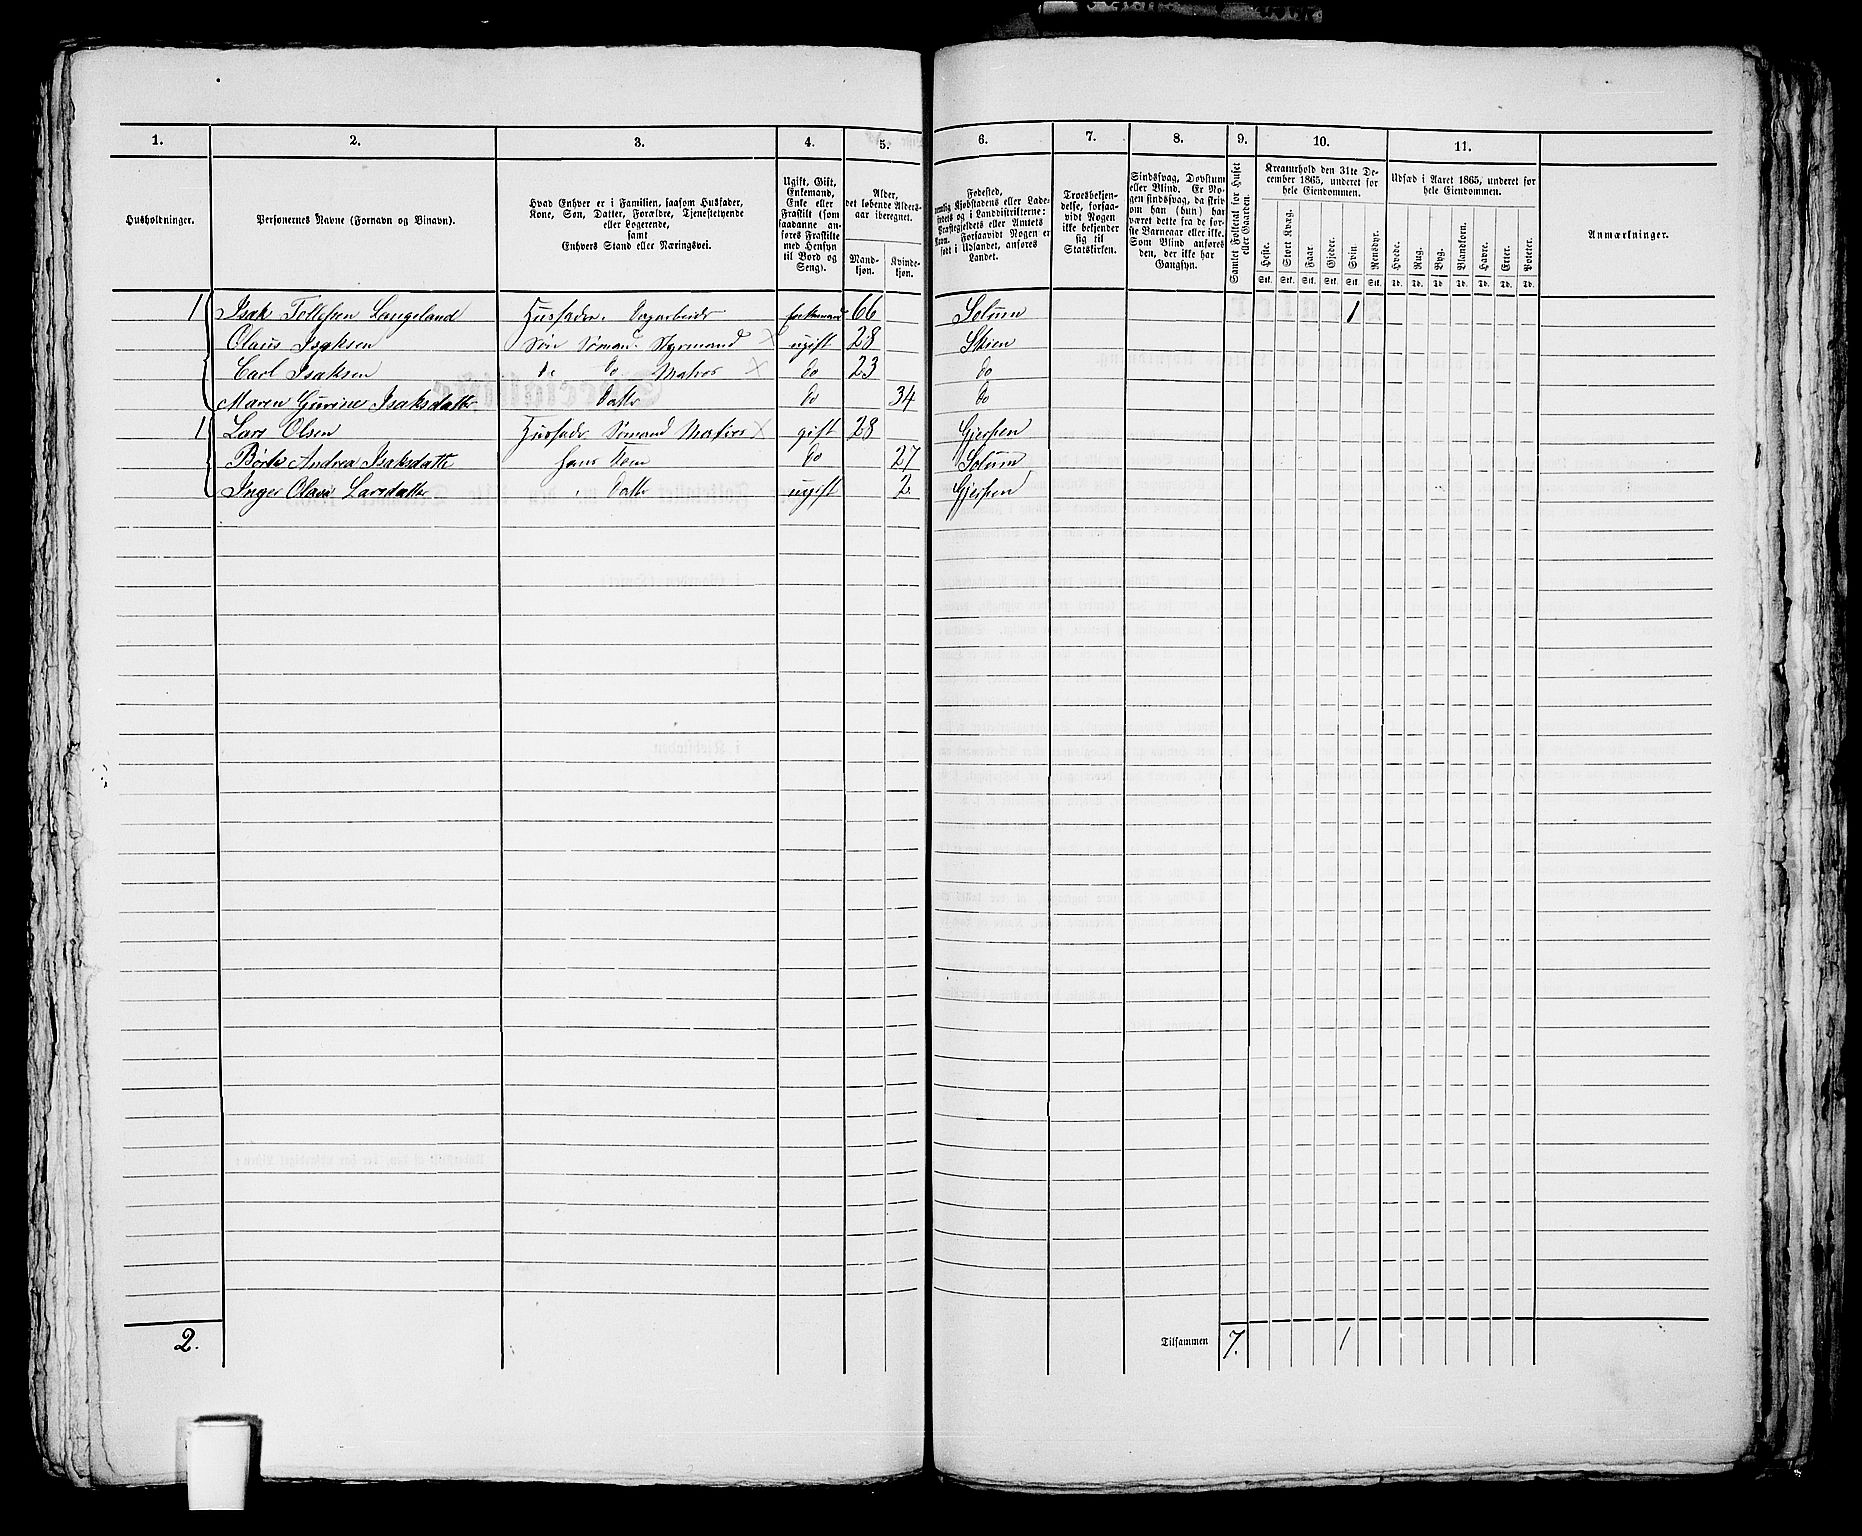 1. 2. 3. 4. 5. 6. 7. 8. 9. 10. 11.
Husholdninger.
Personernes Navne (Fornavn og Binavn).
Hvad Enhver er i Familien, saasom Husfader,
Kone, Søn, Datter, Forældre, Tjenestetyende
eller Logerende,
samt
Enhvers Stand eller Næringsvei.
Ugift, Gift,
Enkemand,
Enke eller
Fraskilt (som
saadanne an-
føres Fraskilte
med Hensyn
til Bord og
Seng).
Alder,
det løbende Alders-
aar iberegnet.
Mand-
kjøn.
Kvinde-
kjøn.
Fødested,
nemlig Kjøbstadens eller Lade-
stedets og i Landdistrikterne:
Præstegjeldets eller Amtets
Navn. Forsaavidt Nogen er
født i Udlandet, anføres
Landet.
Troesbekjen-
delse, forsaa-
vidt Nogen
ikke bekjender
sig til
Statskirken.
Sindssvag, Døvstum
eller Blind. Er No-
gen sindssvag, da skriv
om han (hun) har
været dette fra de før-
ste Barneaar eller ikke.
Som Blind anføres
den, der ikke har
Gangsyn.
Samlet Folketal for Huset
eller Gaarden.
Kreaturhold den 31te De-
cember 1865, underet for
hele Eiendommen.
Heste. Stort Kvæg. Faar. Gjeder. Svin. Rensdyr.
Stk. Stk. Stk. Stk. Stk. Stk.
Udsæd i Aaret 1865, underet for
hele Eiendommen.
Hvede. Rug. Byg. Blandkorn. Havre. Erter. Poteter.
Td. Td. Td. Td. Td. Td. Td.
Anmærkninger.
1 Isak Tollefsen Langeland Husfader. Dagarbeider Enkemand 66 Solum 1
Olaus Isaksen Søn Sømand. Styrmand × ugift 28 Skien
Carl Isaksen do do Matros × do 23 do
Maren Gurine Isaksdatter Datter do 34 do
1 Lars Olsen Husfader Sømand Matros × gift 28 Gjerpen
Andrea Isaksdatter hans Kone do 27 Solum
Inger Olava Larsdatter Datter ugift 2 Gjerpen
2. Tilsammen 7. 1